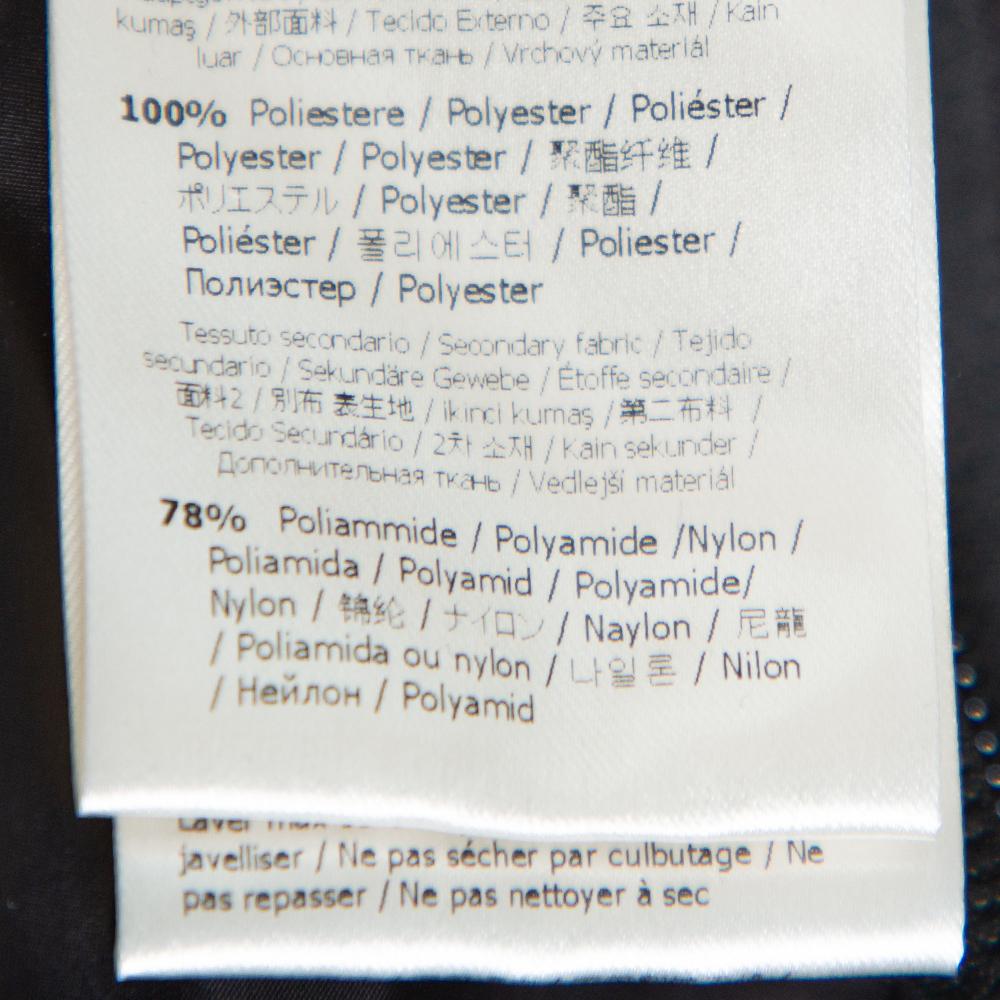 kumaş / 外部面料 / Tecido Externo / 주요 소재 / Kain
luar / Основная ткань / Vrchový materiál
100% Poliestere / Polyester / Poliéster /
Polyester / Polyester / 聚酯纤维 /
ポリエステル / Polyester / 聚酯 /
Poliéster / 폴리에스터 / Poliester /
Полиэстер / Polyester
Tessuto secondario / Secondary fabric / Tejido
secundario / Sekundäre Gewebe / Étoffe secondaire /
面料2 / 別布 表生地 / ikinci kumaş / 第二布料 /
Tecido Secundário / 2차 소재 / Kain sekunder /
Дополнительная ткань / Vedlejší materiál
78% Poliammide / Polyamide /Nylon /
Poliamida / Polyamid / Polyamide/
Nylon / 锦纶 / ナイロン / Naylon / 尼龍
/ Poliamida ou nylon / 나일론 / Nilon
/ Нейлон / Polyamid
Laver max
javelliser / Ne pas sécher par culbutage / Ne
pas repasser / Ne pas nettoyer à sec